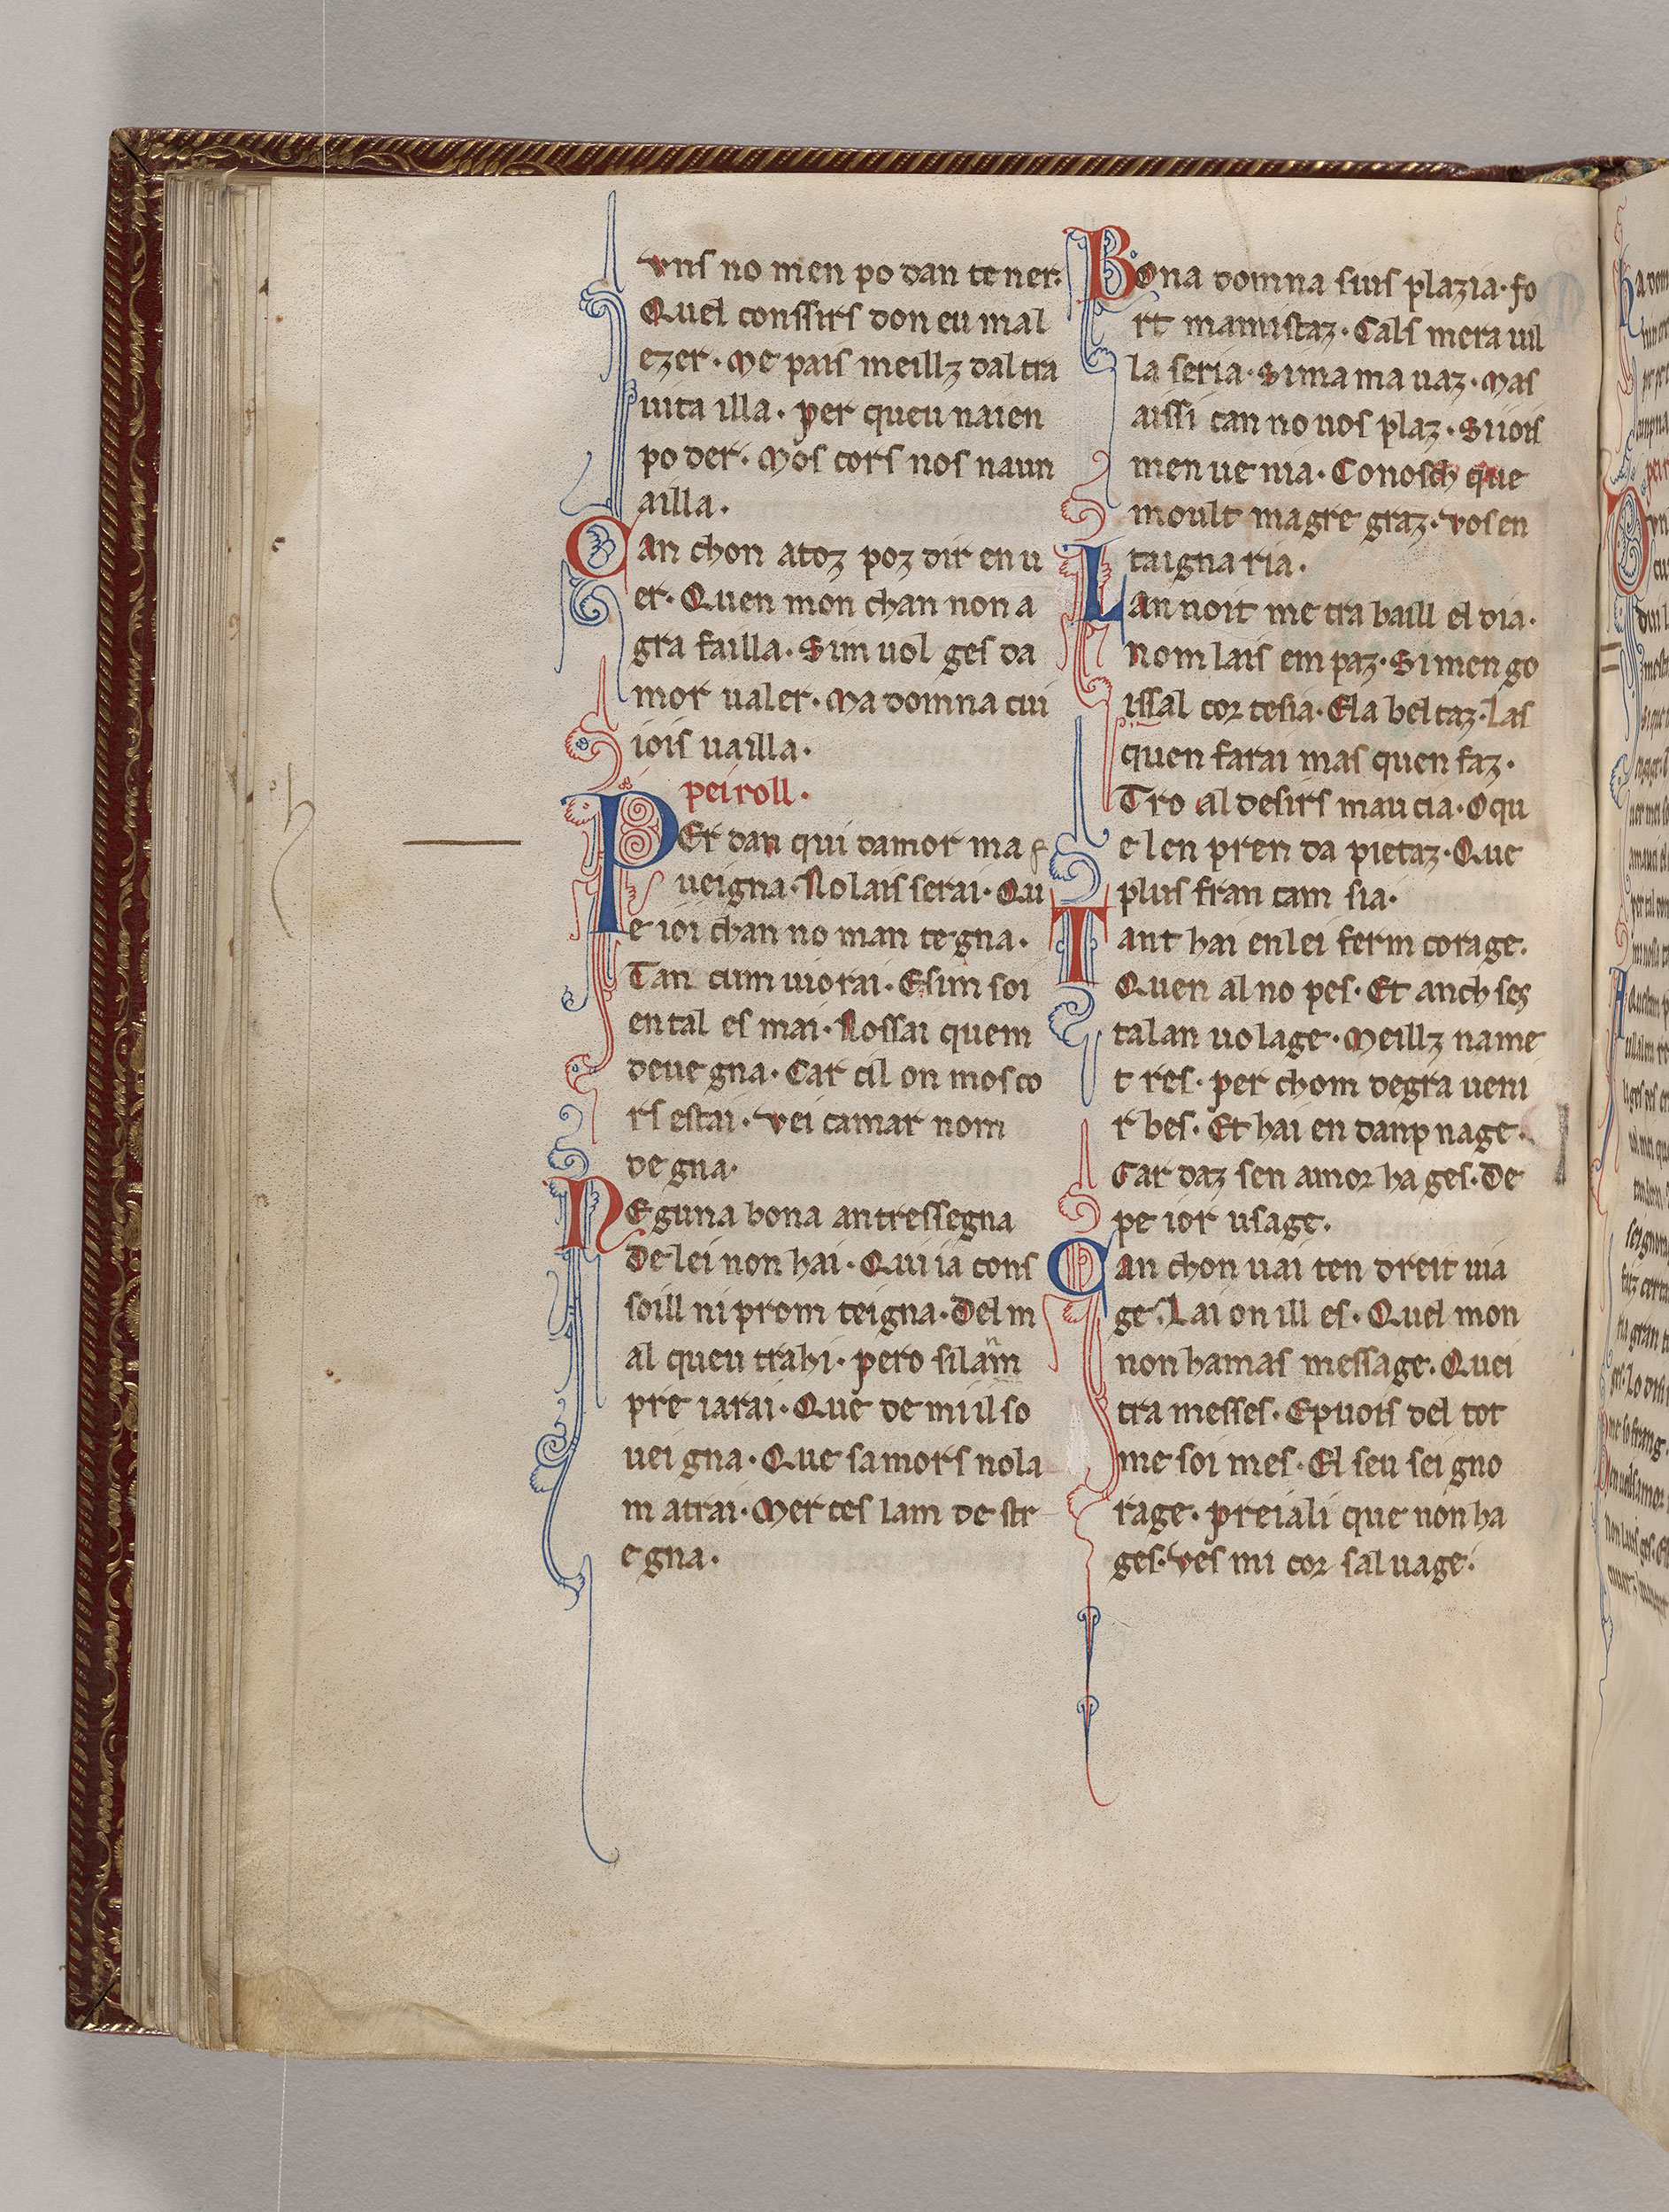 vns no men po dan te ner·
Quel conssirs don eu mal
ezer· Me pais meillz dal tra
uita illa· per queu naien
po der· Mos cors nos naun
ailla·
Can chon atoz poz dir en u
er· Quen mon chan non a
gra failla· Sim uol ges da
mor ualer· Ma domna cui
iois uailla·
peiroll·
PEr dan qui damor ma
ueigna· No lais serai· Qu
e ioi chan no man te gna·
Tan cum uiorai· Esim soi
en tal es mai· Nossai quem
deue gna· Car cil on mos co
rs estai· vei camar nom
de gna·
NEguna bona an tressegna
De lei non hai· Qui ia cons
soill ni prom teigna· Del m
al queu trahi· pero silam
pre iarai· Que de mi il so
uei gna· Que samors nola
m atrai· Mer ces lam de str
e gna·
Bona domna suis plazia· fo
rt mamistaz· Cals mera uil
la seria· Sima ma uaz· Mas
aissi can no uos plaz· Siiois
men ue nia· Conosch que
moult magre graz· vos en
taigna ria·
Lan noit me tra baill el dia·
nom lais em paz· Si men go
issal cor tesia· Ela bel taz· Las
quen farai mas quen faz·
Tro al desirs mau cia· O qu
e len pren da pietaz· Que
plus fran cam sia·
Tant hai en lei ferm corage·
Quen al no pes· Et anch ses
talan uo lage· Meillz name
t res· per chom degra ueni
r bes· Et hai en danp nage·
Car daz sen amor ha ges· De
pe ior usage·
Can chon uai ten dreit uia
ge· Lai on ill es· Quel mon
non hamas message· Quei
tra messes· Epuois del tot
me soi mes· El seu sei gno
rage· preiali que non ha
ges· ves mi cor sal uage·